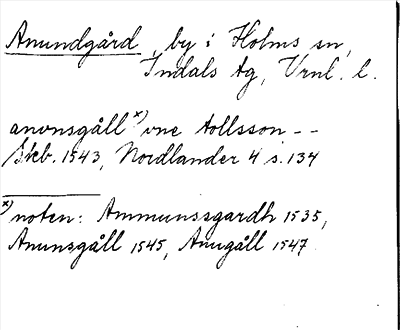 Anundgård, by i Holms sn,
Indals tg, Vrnl. l.
anvnsgåll x) vne tollsson - -
Skb. 1543, Nordlander 4 s. 134
x) noten: Ammunssgardh 1535,
Anunsgåll 1545, Anugåll 1547